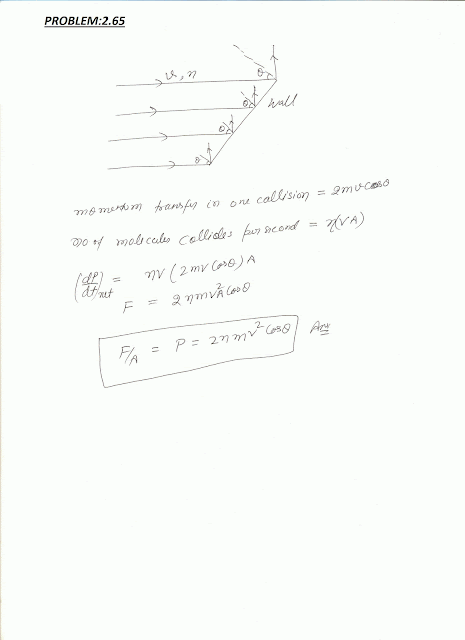 PROBLEM:2.65
v, n
θ
θ wall
θ
θ
momentum transfer in one collision = 2mv cosθ
no of molecules collides per second = n(vA)
(dP/dt)net = nv (2mv cosθ) A
F = 2nmv²A cosθ
F/A = P = 2nmv² cosθ Ans